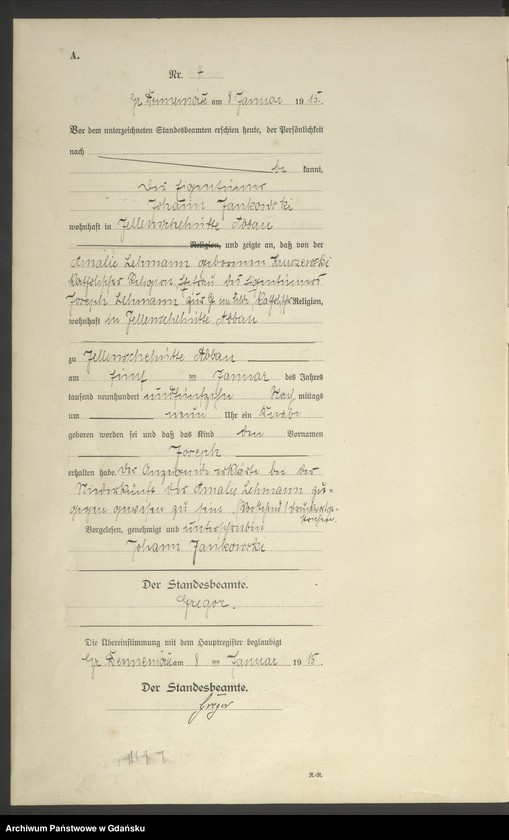 A.
Nr. 7
am 8 Januar 1915.
Vor dem unterzeichneten Standesbeamten erschien heute, der Persönlichkeit
nach
be kannt,
der Eigentümer
Johann Jankowski
wohnhaft in Jellenschehütte Abbau
Religion, und zeigte an, daß von der
Amalie Lehmann geborenen
katholischer Religion, Ehefrau des Eigentümers
Joseph Lehmann, zur Katholischer Religion,
wohnhaft in Jellenschehütte Abbau
zu Jellenschehütte Abbau
am fünf ten Januar des Jahres
tausend neunhundert und fünfzehn Nach mittags
um neun Uhr ein Knabe
geboren worden sei und daß das Kind den Vornamen
Joseph
erhalten habe. Der Anzeigende erklärte bei der
Niederkunft der Amalie Lehmann zu=
gegen gewesen zu sein. (Vorstehend
Vorgelesen, genehmigt und unterschrieben
Johann Jankowski
Der Standesbeamte.
Gregor.
Die Übereinstimmung mit dem Hauptregister beglaubigt
am 8 ten Januar 1915.
Der Standesbeamte.
Gregor
R.-R.
Archiwum Państwowe w Gdańsku